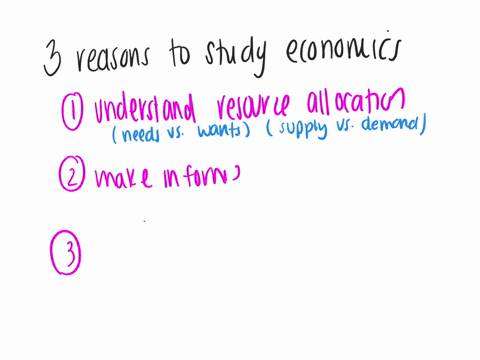 3 reasons to study economics
① understand resource allocation
(needs vs. wants) (supply vs. demand)
② make inform
③